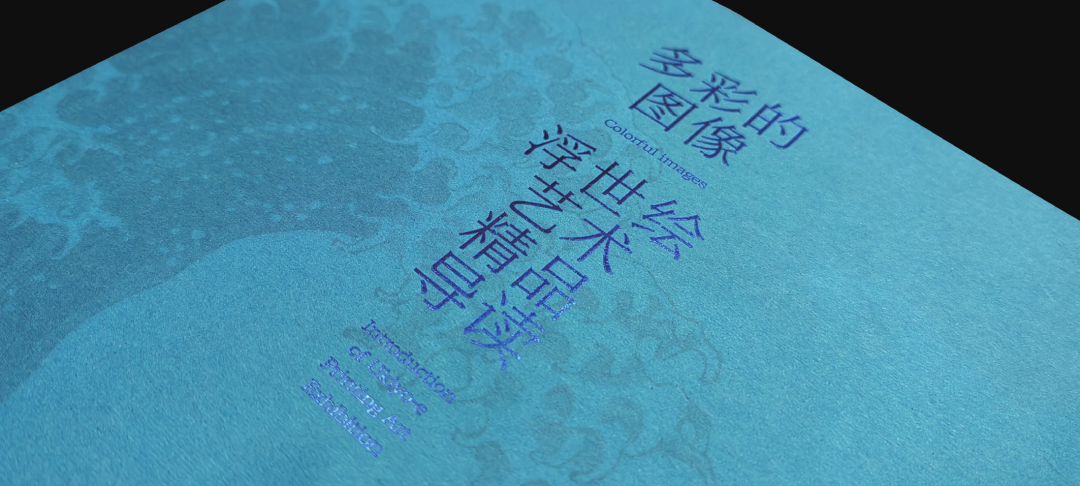 多彩的
图像
Colorful images
浮世绘
艺术
精品
导读
Introduction
of Ukiyo-e
Printing Art
Exhibition